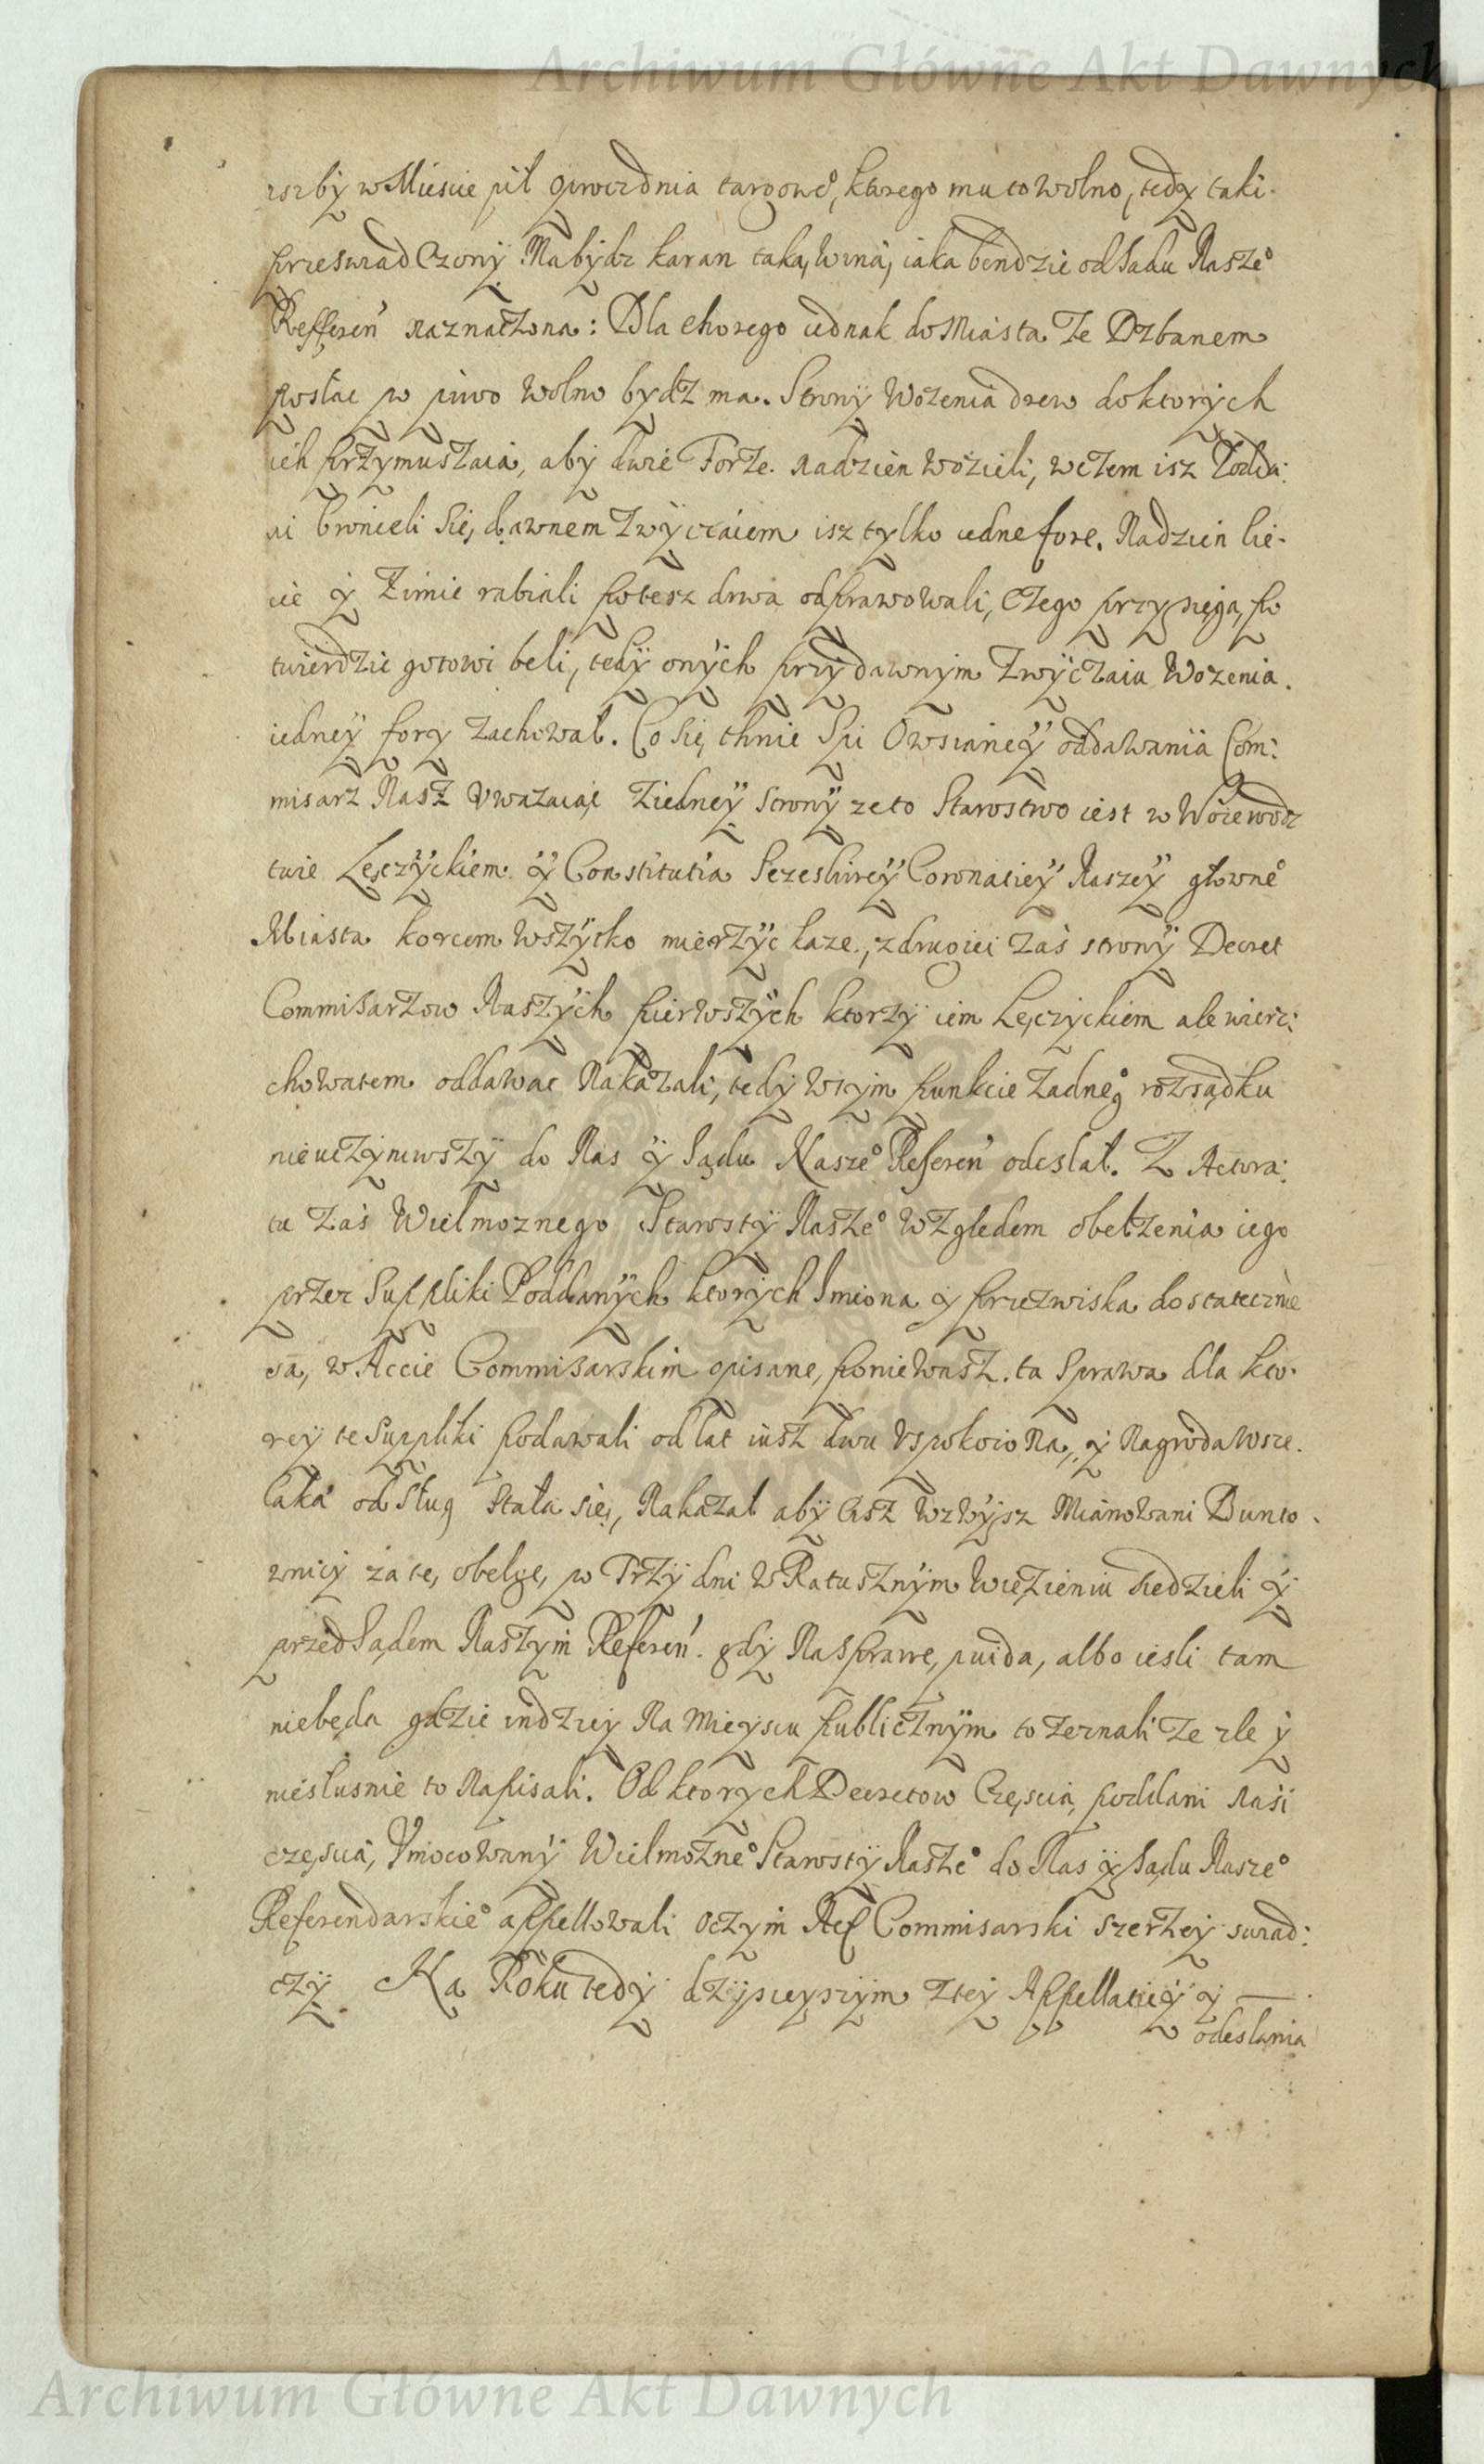 Archiwum Główne Akt Dawnych
rszby w Miescie pił oprocz dnia targowe°, ktorego mu to wolno, tedy taki
przeswiadczony Ma bydz karan taką winą, iaka bendzie od Sądu Nasze°
Refferen naznaczona: Dla chorego iednak do Miasta Ze Dzbanem
posłac po piwo wolno bydz ma. Strony Wożenia drew do ktorych
ich przymuszaią, aby dwie Forze. na dzien wozieli, w czem isz Podda:
ni bronieli Się, dawnem zwyczaiem isz tylko iedne fore. Na dzien lie:
cie y Zimie rabiali po tesz drwa odprawowali, czego przysięgą, po
twierdzic gotowi beli, tedy onych przy dawnym zwyczaiu Wozenia.
iedney fory zachował. Co się tknie Spi Owsianey oddawania Com:
misarz Nasz Vwazaiąc z iedney strony ze to Starostwo iest w Woiewodz
twie Lęczyckiem y Constitutia Sczesliwey Coronatiey Naszey głowne°
Miasta korcem wszytko mierzyc kaze, z drugiei zaś strony Decret
Commisarzow Naszych pierwszych ktorzy iem Lęczyckiem ale wierz:
chowatem oddawac Nakazali, tedy w tym punkcie żadneg° rozsądku
nieuczyniwszy do Nas y Sądu Nasze° Referen odesłał. Z Actora:
tu zaś Wielmoznego Starosty Nasze° względem obelzenia iego
przez Suppliki Poddanych ktorych Imiona y przezwiska dostatecznie
są, w Akcie Commisarskim opisane, poniewasz ta Sprawa dla kto:
rey te Suppliki podawali od lat iusz dwu Vspokoiona, y Nagroda wsze.
laka od sług stała się, Nakazał aby cisz wzwysz Mianowani Bunto
wnicy za te, obelge, po Trzy dni w Ratusznym Więzieniu siedzieli y
przed Sądem Naszym Referen gdy Na sprawe, puida, albo iesli tam
niebęda gdzie indziey Na mieyscu publicznym to zeznali Ze zle y
niesłusnie to Napisali. Od ktorych Decretow Częscią, poddani nasi
częscią, Vmocowany Wielmozne° Starosty Nasze° do Nas y Sądu Nasze°
Referendarskie° appellowali o czym Act Commisarski szerzey swiad:
czy. Na Roku tedy dzysieyszym z tey Appellatiey y
odesłania
Archiwum Główne Akt Dawnych